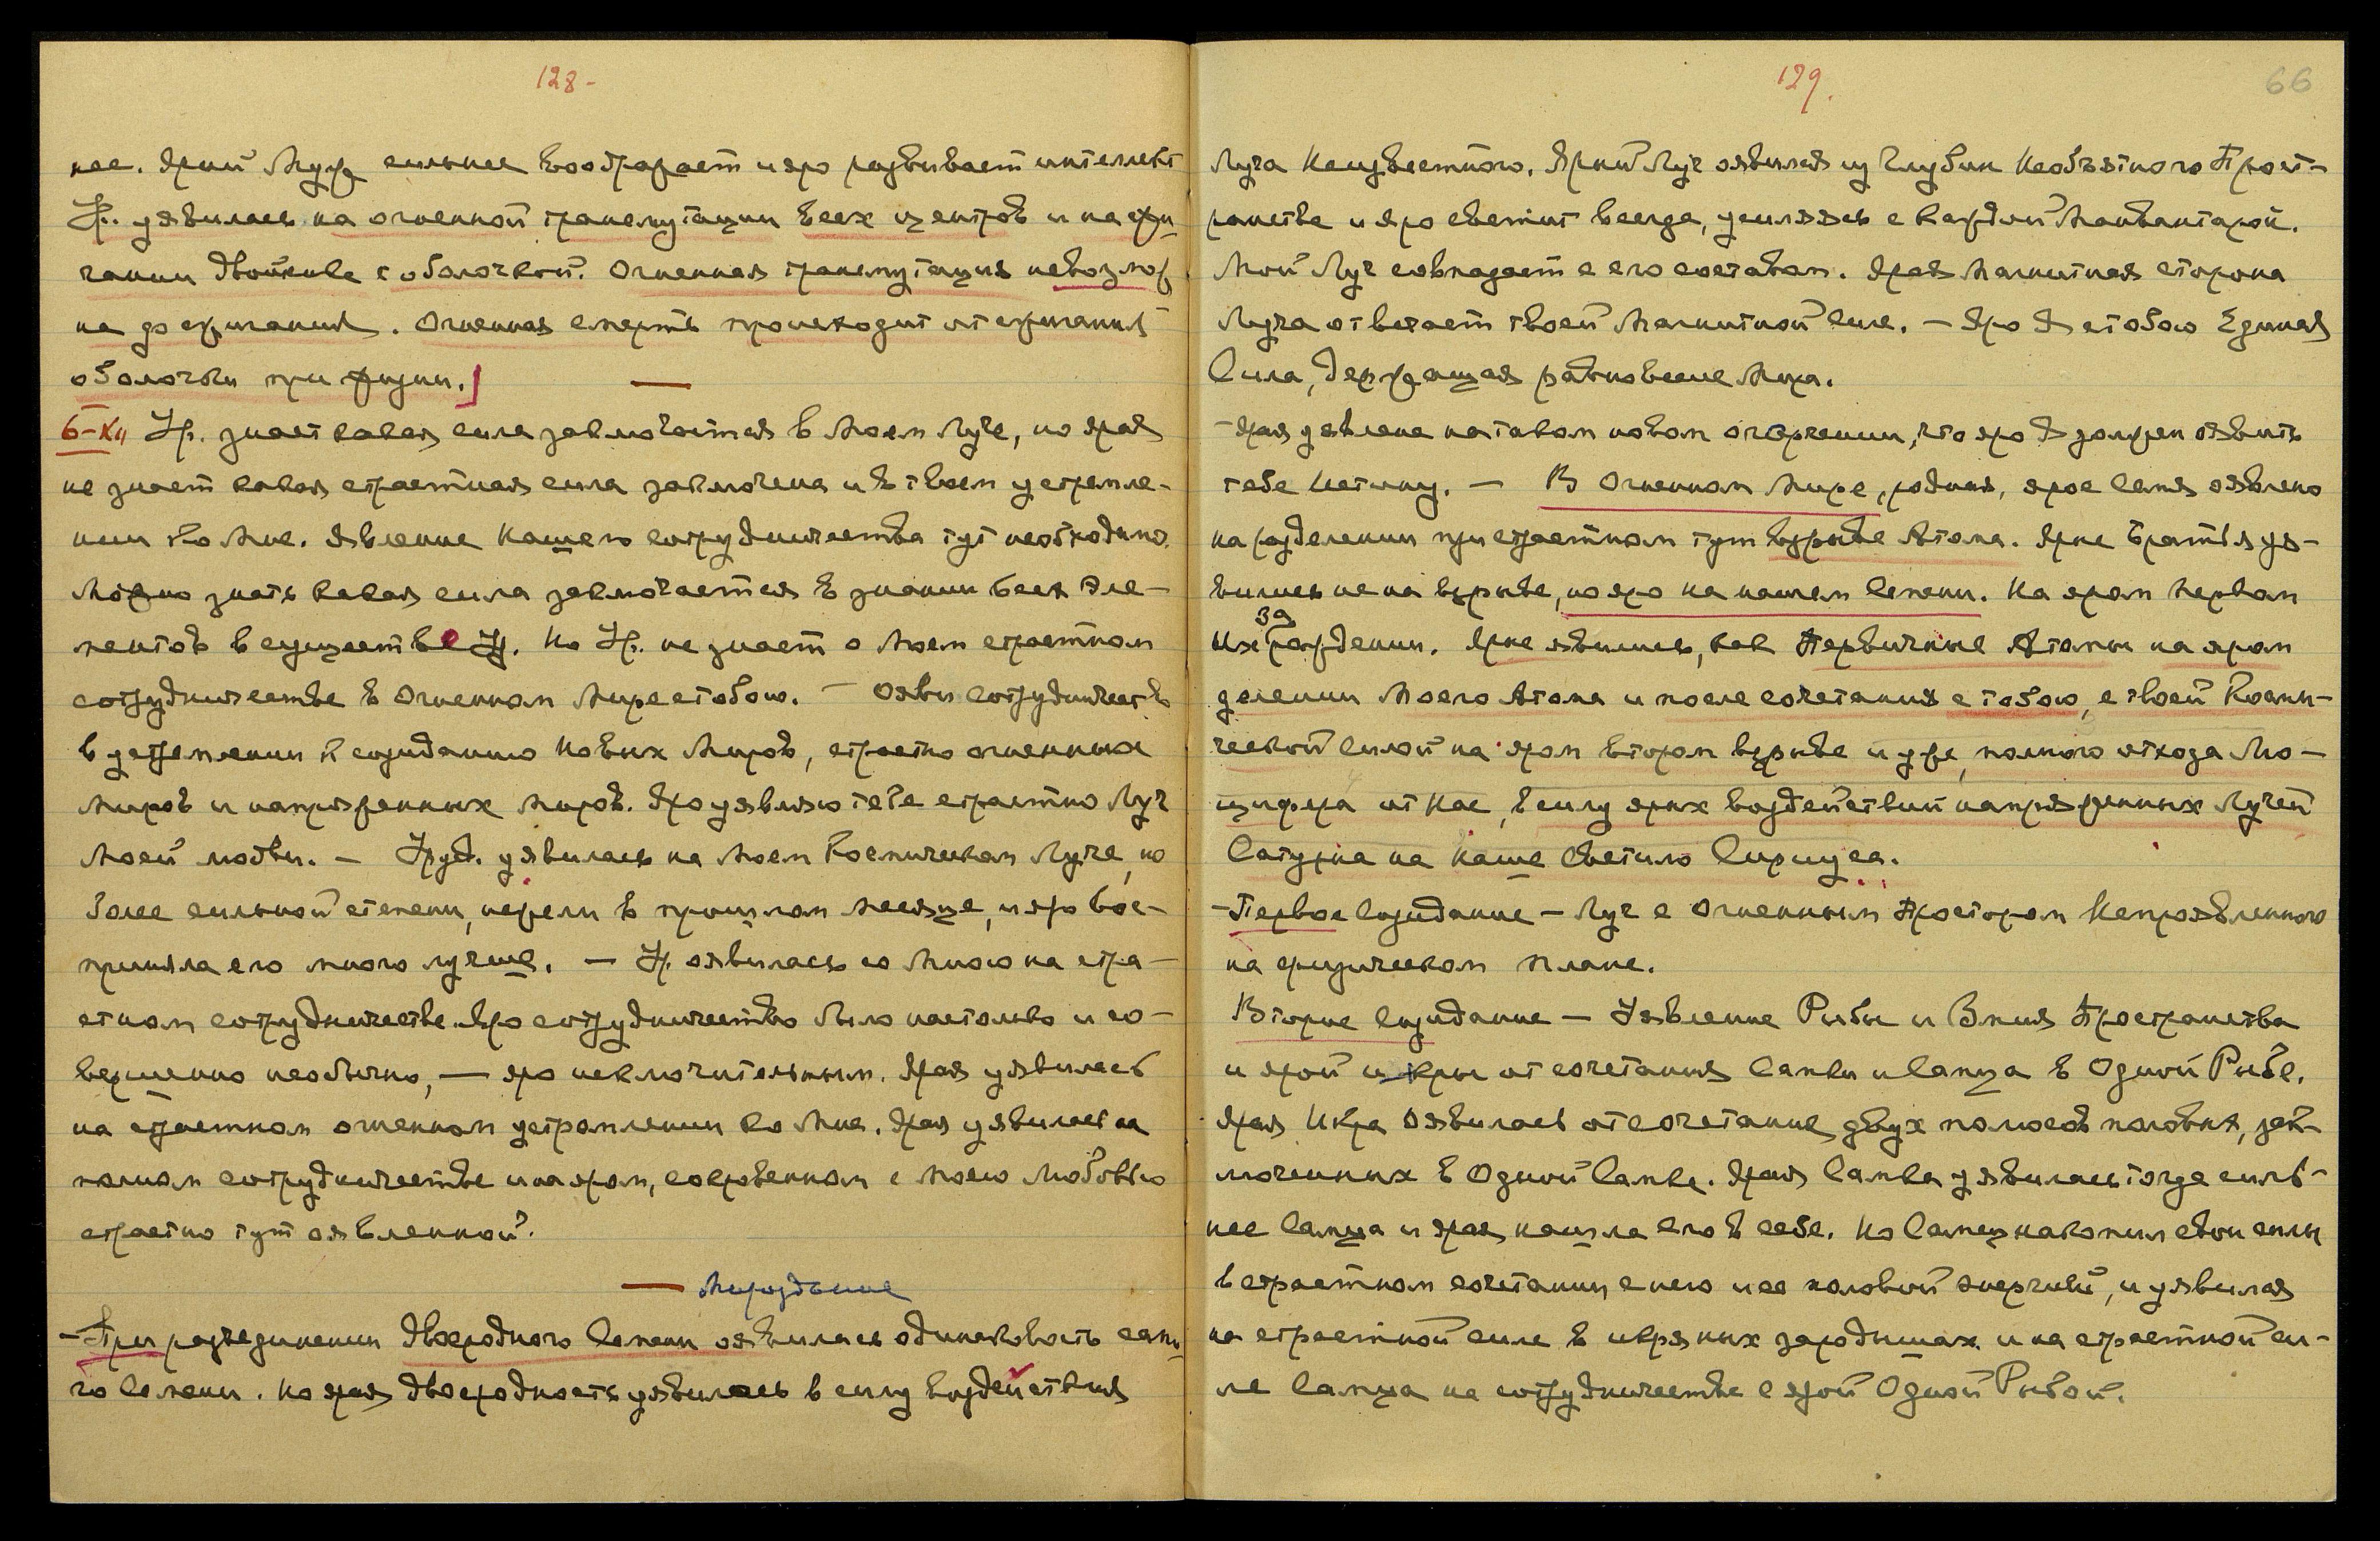 128 -
нее. Яркий Муж сильнее воображает и яро развивает интеллект
Ур. уявилась на огненной трансмутации всех центров и на сжи-
гании двойника с оболочкой. Огненная трансмутация невозмож
на до сжигания. Огненная смерть происходит от сжигания
оболочки при жизни.]
6-XII Ур. знает какая сила заключается в Моем Луче, но ярая
не знает какая страстная сила заключена и в твоем устремле-
нии ко Мне. Явление Нашего сотрудничества тут необходимо.
Можно знать какая сила заключается в знании всех эле-
ментов в существе Ур. Но Ур. не знает о Моем страстном
сотрудничестве в Огненном Мире с тобою. — Ояви сотрудничеств
в устремлении к созиданию Новых Миров, страстно огненных
Миров и напряженных Миров. Яро уявляю тебе страстно Луч
Моей любви. — Уруз. уявилась на Моем Космическом Луче, но
более сильной степени, нежели в прошлом месяце, и яро вос-
приняла его много лучше. — Ур. оявилась со Мною на стра-
стном сотрудничестве. Яро сотрудничество было настолько и со-
вершенно необычно, — яро исключительным. Ярая уявилась
на страстном огненном устремлении ко Мне. Ярая уявилась на
полном сотрудничестве и на яром, сокровенном с Моею Любовью
страстно тут оявленной.
— Мироздание
- При разъединении двуродного Семени оявилась одинаковость само-
го Семени. Но ярая двуродность уявилась в силу воздействия
129. 66
Луча Неизвестного. Яркий Луч оявился из Глубин Необъятного Прост-
ранства и яро светит всегда, усиляясь с каждой Манвантарой.
Мой Луч совпадает с его составом. Ярая Магнитная сторона
Луча отвечает твоей Магнитной Силе. — Яро Я с тобою Единая
Сила, держащая равновесие Мира.
- Ярая уявлена на таком новом огорчении, что яро Я должен оявить
тебе Истину. — В Огненном Мире, родная, ярое Семя оявлено
на разделении при страстном тут взрыве Атома. Ярые Братья уя-
вились не на взрыве, но яро на нашем Семени. На яром Первом
Их зарождении. Ярые явились, как Первичные Атомы на яром
делении Моего Атома и после сочетания с тобою, с твоей Косми-
ческой Силой на яром втором взрыве и уже, полного отхода Лю-
цифера от Нас, в силу ярых воздействий напряженных Лучей
Сатурна на Наше Светило Сириуса.
- Первое Созидание — Луч с Огненным Простором Непроявленного
на физическом плане.
Второе Созидание — Уявление Рыбы и Змия Пространства
и ярой икры от сочетания Самки и Самца в Одной Рыбе.
Ярая Икра Оявилась от сочетания двух полюсов половых, зак-
люченных в Одной Самке. Ярая Самка уявилась тогда силь-
нее Самца и ярая носила Его в себе. Но Самец накопил свои силы
в страстном сочетании с нею и ее половой энергией, и уявился
на страстной силе в икряных зародышах и на страстной си-
ле Самца на сотрудничестве с ярой Одной Рыбой.